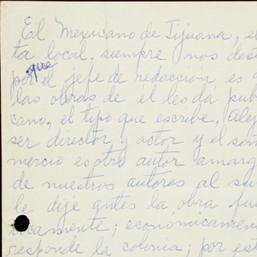 El Mexicano de Tijuana, e
ta local, siempre nos dest
porque el jefe de redaccion es a
las obras de él leo dá pub
cano, el tipo que escribe, alej
ser director y actor y el som
mercio es otro autor amarg
de nuestros autores al su
le dije antes la obra fue
camente; economicamen
responde la colonia; por est